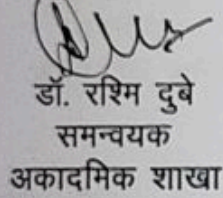 डॉ. रश्मि दुबे
समन्वयक
अकादमिक शाखा